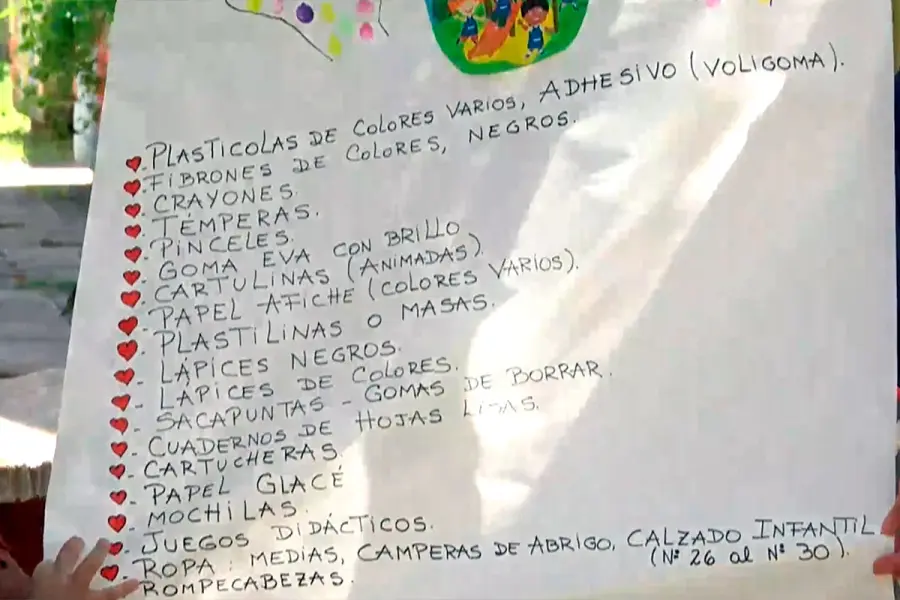 PLASTICOLAS DE COLORES VARIOS, ADHESIVO (VOLIGOMA).
FIBRONES DE COLORES, NEGROS.
CRAYONES.
TÉMPERAS.
PINCELES.
GOMA EVA CON BRILLO
CARTULINAS (ANIMADAS).
PAPEL AFICHE (COLORES VARIOS).
PLASTILINAS O MASAS.
LÁPICES NEGROS.
LÁPICES DE COLORES.
SACAPUNTAS - GOMAS DE BORRAR.
CUADERNOS DE HOJAS LISAS.
CARTUCHERAS
PAPEL GLACÉ
MOCHILAS.
JUEGOS DIDÁCTICOS.
ROPA: MEDIAS, CAMPERAS DE ABRIGO, CALZADO INFANTIL
(Nº 26 al Nº 30).
ROMPECABEZAS.